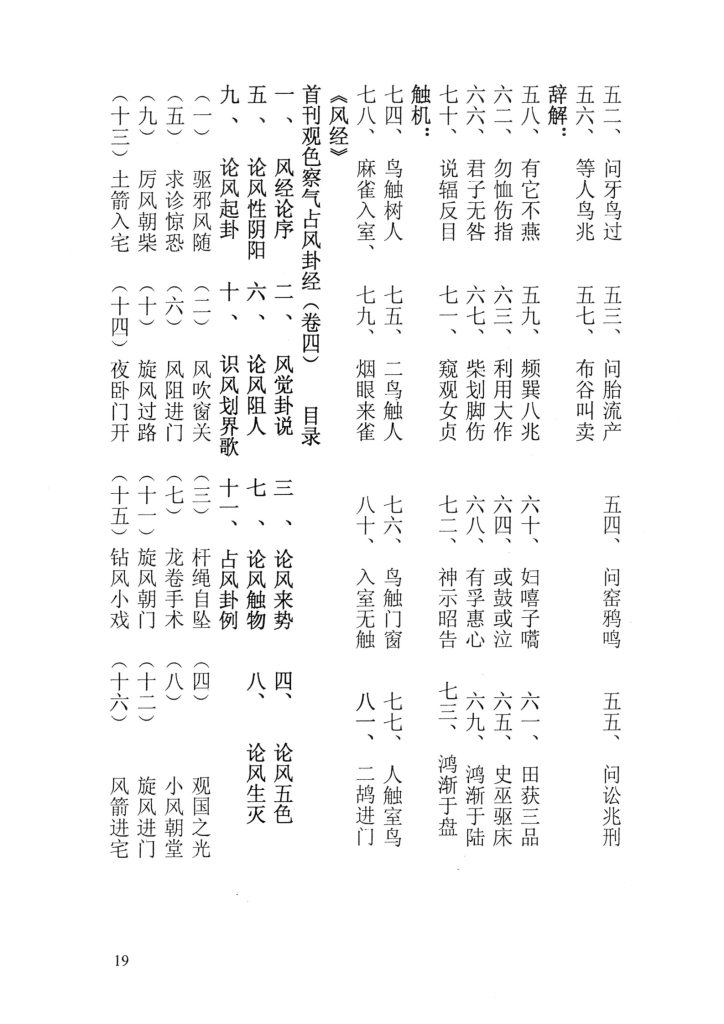 五二、问牙鸟过 五三、问胎流产 五四、问窑鸦鸣 五五、问讼兆刑
五六、等人鸟兆 五七、布谷叫卖
辞解：
五八、有它不燕 五九、频巽八兆 六十、妇嘻子嗃 六一、田获三品
六二、勿恤伤指 六三、利用大作 六四、或鼓或泣 六五、史巫驱床
六六、君子无咎 六七、柴划脚伤 六八、有孚惠心 六九、鸿渐于陆
七十、说辐反目 七一、窥观女贞 七二、神示昭告 七三、鸿渐于盘
触机：
七四、鸟触树人 七五、二鸟触人 七六、鸟触门窗 七七、人触室鸟
七八、麻雀入室、 七九、烟眼来雀 八十、入室无触 八一、二鸪进门
《风经》
首刊观色察气占风卦经（卷四） 目录
一、风经论序 二、风觉卦说 三、论风来势 四、论风五色
五、论风性阴阳 六、论风阻人 七、论风触物 八、论风生灭
九、论风起卦 十、识风划界歌 十一、占风卦例
（一）驱邪风随 （二）风吹窗关 （三）杆绳自坠 （四）观国之光
（五）求诊惊恐 （六）风阻进门 （七）龙卷手术 （八）小风朝堂
（九）厉风朝柴 （十）旋风过路 （十一）旋风朝门 （十二）旋风进门
（十三）土箭入宅 （十四）夜卧门开 （十五）钻风小戏 （十六）风箭进宅
19